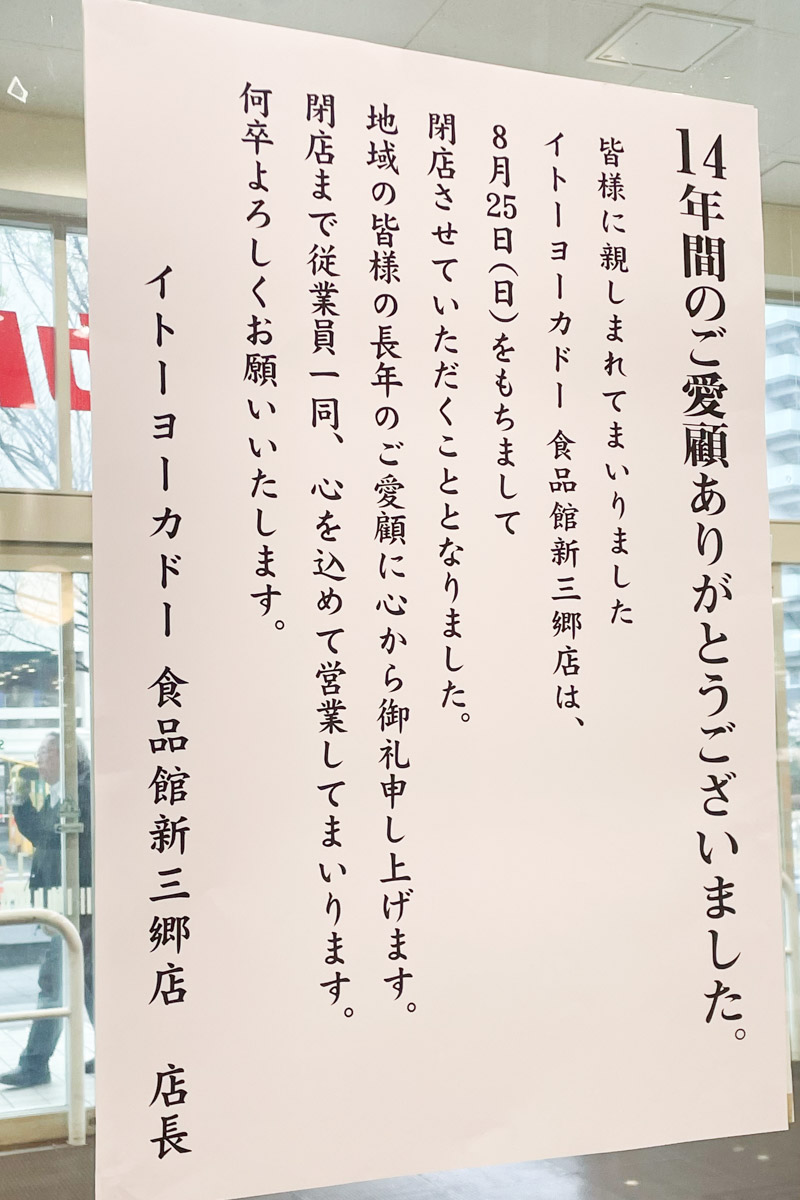 14年間のご愛顧ありがとうございました。
皆様に親しまれてまいりました
イトーヨーカドー 食品館新三郷店は、
8月25日(日)をもちまして
閉店させていただくこととなりました。
地域の皆様の長年のご愛顧に心から御礼申し上げます。
閉店まで従業員一同、心を込めて営業してまいります。
何卒よろしくお願いいたします。
イトーヨーカドー 食品館新三郷店 店長